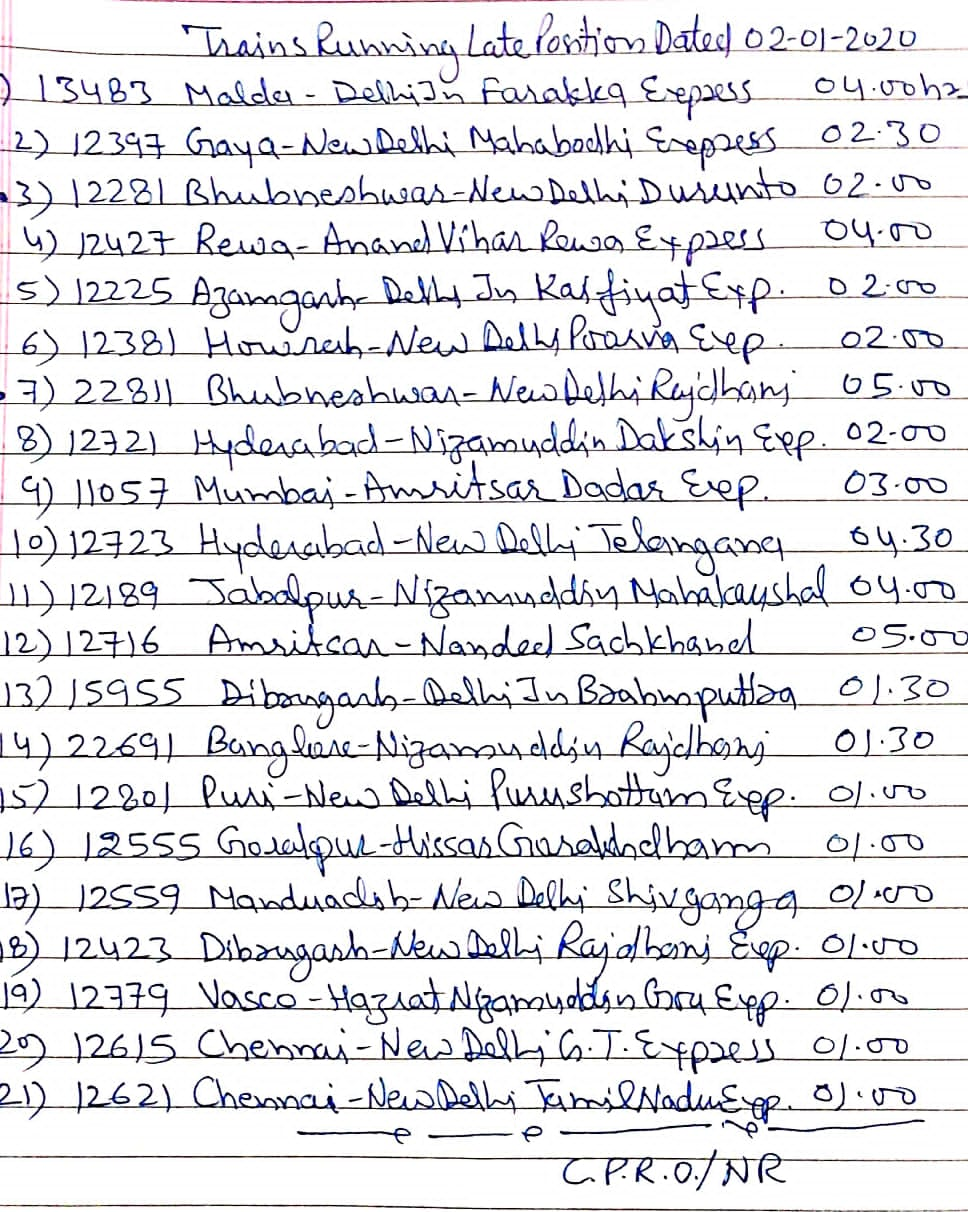 Trains Running Late Position Dated 02-01-2020
1) 13483 Malda - Delhi Jn Farakka Express 04.00hr
2) 12397 Gaya-New Delhi Mahabodhi Express 02.30
3) 12281 Bhubneshwar-New Delhi Duronto 02.00
4) 12427 Rewa-Anand Vihar Rewa Express 04.00
5) 12225 Azamgarh-Delhi Jn Kaifiyat Exp. 02.00
6) 12381 Howrah-New Delhi Poorva Exp. 02.00
7) 22811 Bhubneshwar-New Delhi Rajdhani 05.00
8) 12721 Hyderabad-Nizamuddin Dakshin Exp. 02-00
9) 11057 Mumbai-Amritsar Dadar Exp. 03.00
10) 12723 Hyderabad-New Delhi Telangana 04.30
11) 12189 Jabalpur-Nizamuddin Mahakaushal 04.00
12) 12716 Amritsar-Nanded Sachkhand 05.00
13) 15955 Dibrugarh-Delhi Jn Brahmputtra 01.30
14) 22691 Banglore-Nizamuddin Rajdhani 01.30
15) 12801 Puri-New Delhi Purushottam Exp. 01.00
16) 12555 Gorakpur-Hissar Gorakhdham 01.00
17) 12559 Manduadih-New Delhi Shivganga 01.00
18) 12423 Dibrugarh-New Delhi Rajdhani Exp. 01.00
19) 12779 Vasco-Hazrat Nizamuddin Goa Exp. 01.00
20) 12615 Chennai-New Delhi G.T. Express 01.00
21) 12621 Chennai-New Delhi Tamil Nadu Exp. 01.00
C.P.R.O./NR